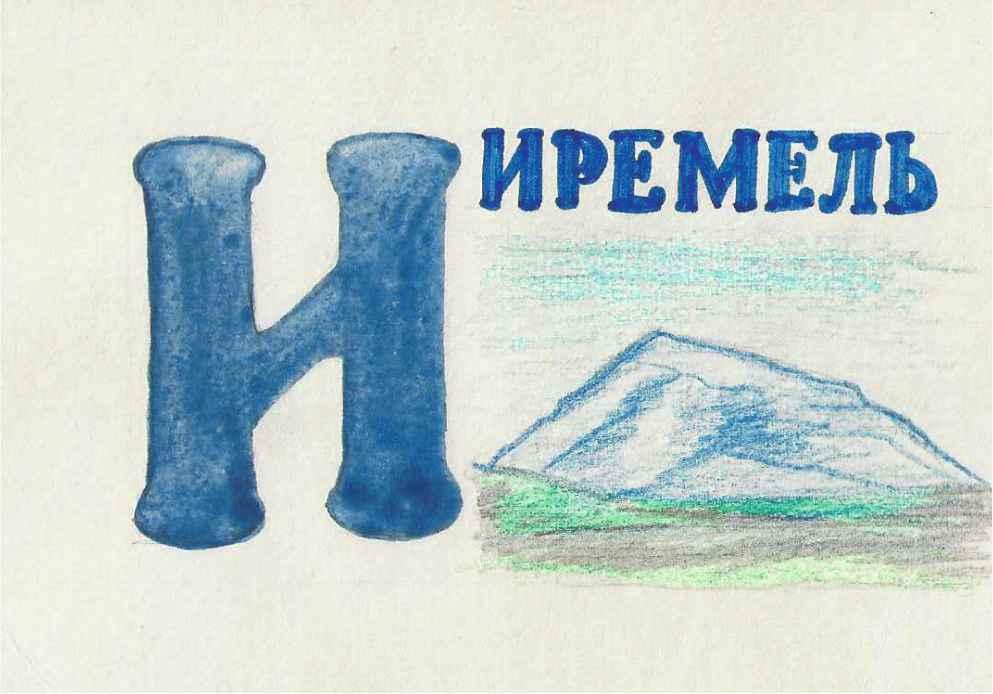 И
ИРЕМЕЛЬ